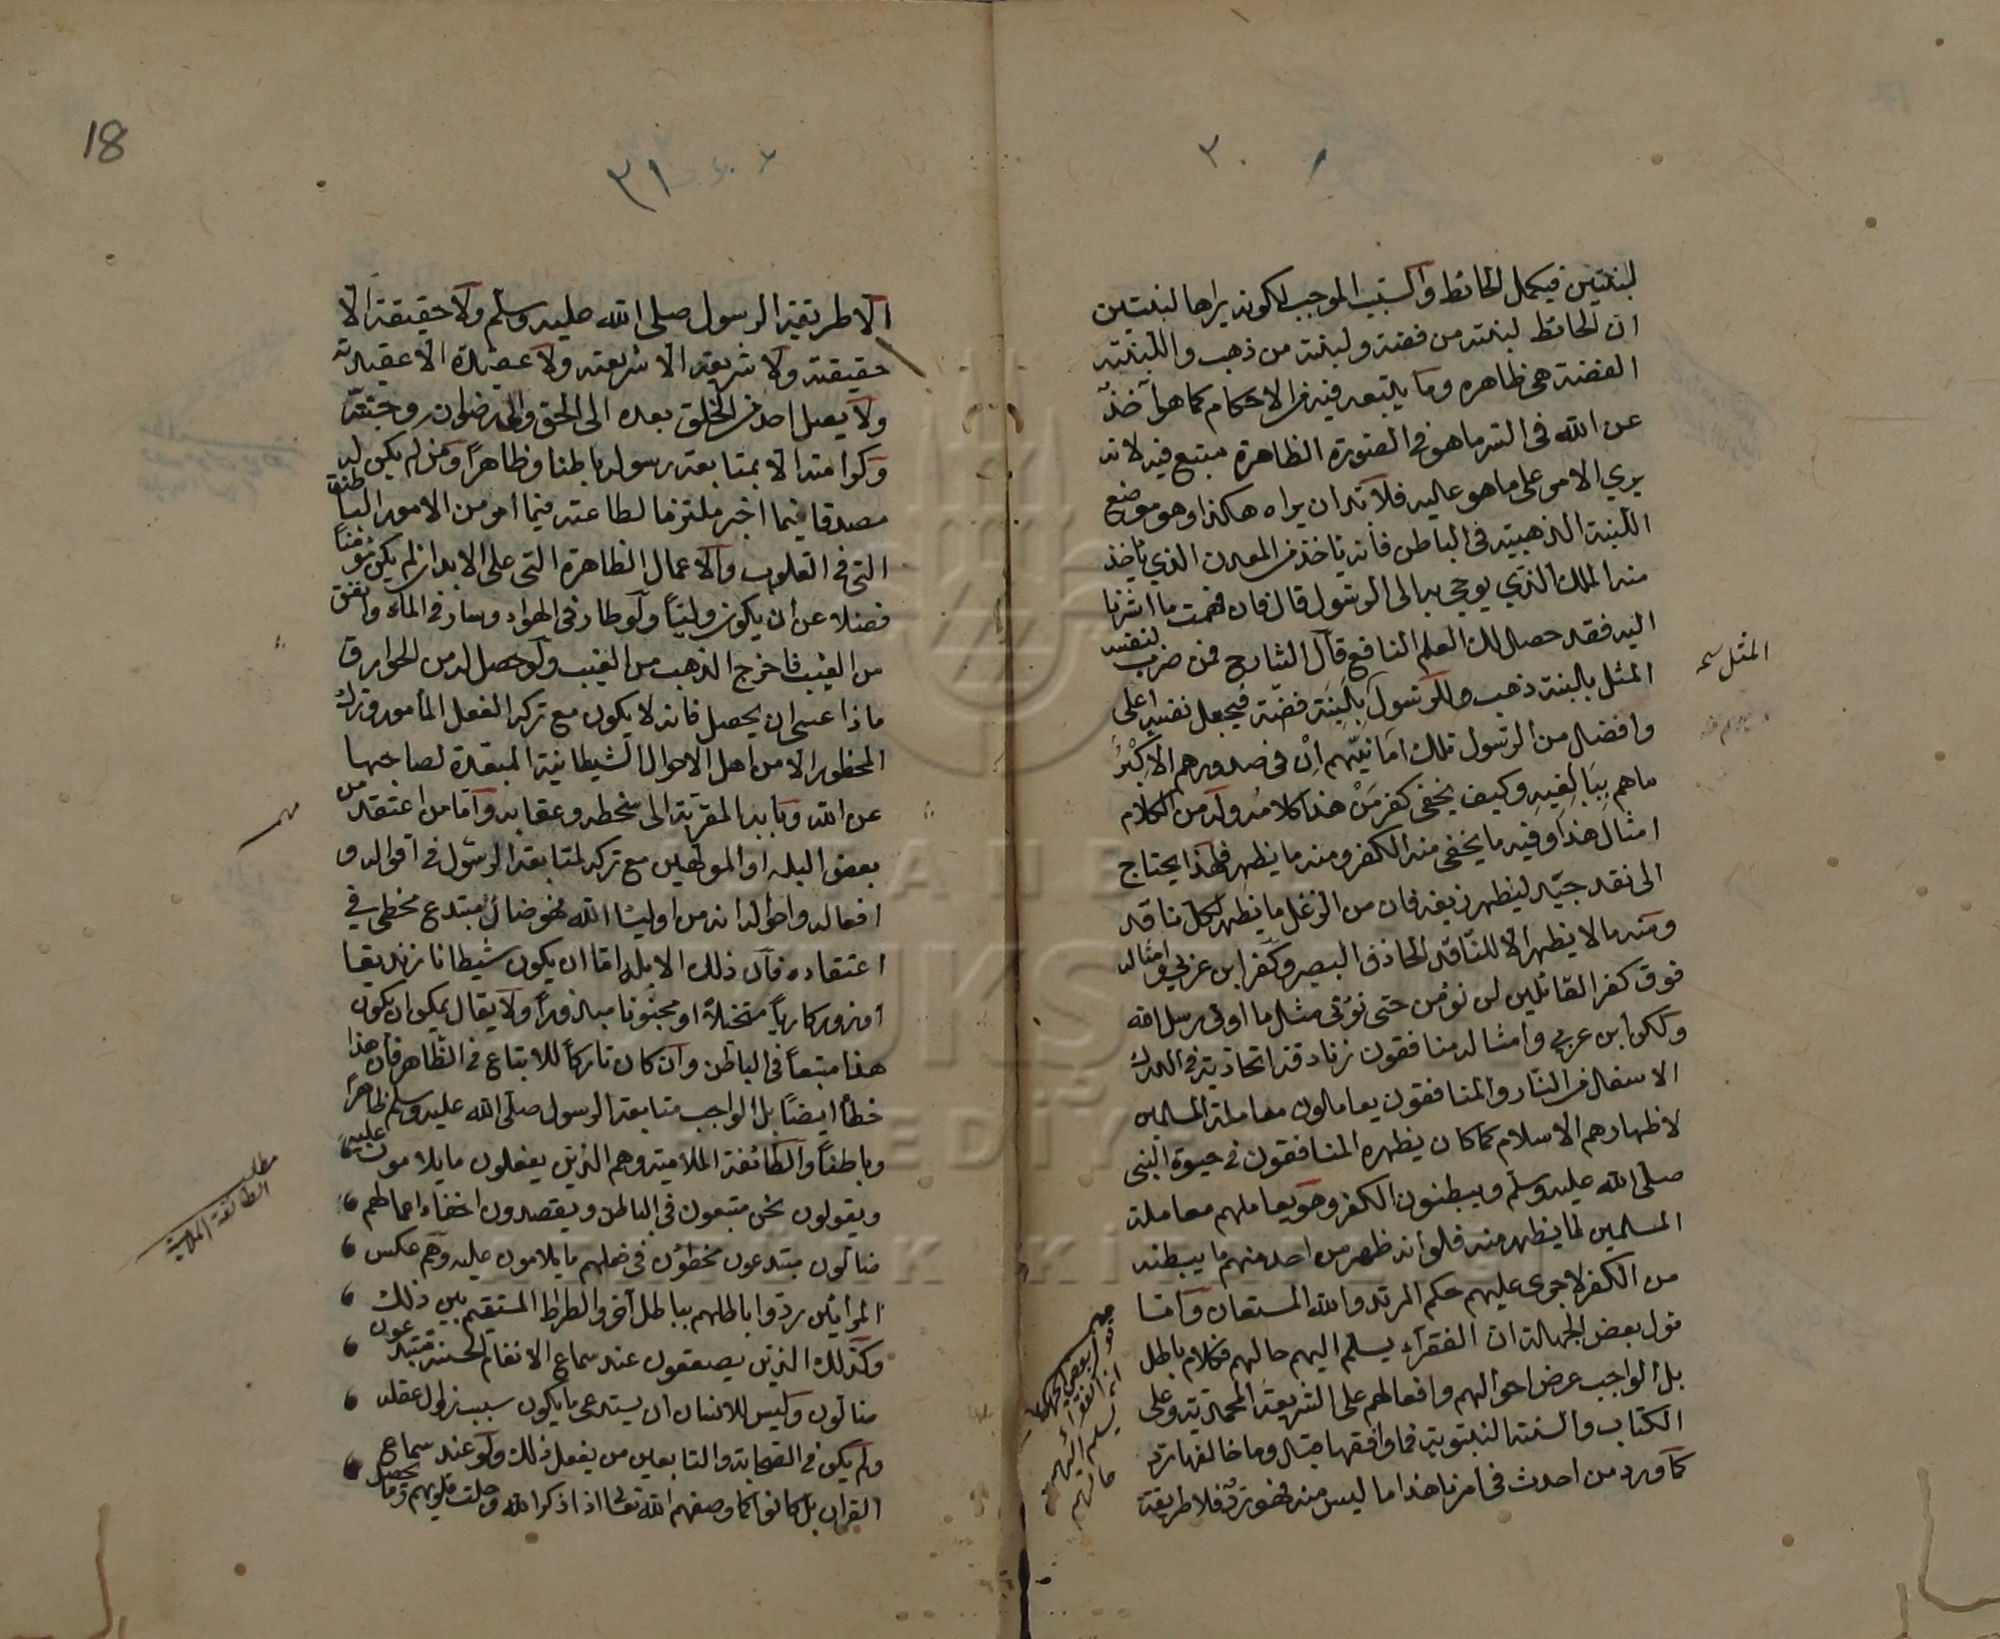 ٣٠
لبنتين فيكمل الحائط والسبب الموجب لكونه يراها لبنتين
ان الحائط لبنته من فضة ولبنة من ذهب واللبنته
الفضة هي ظاهره وما يتبعه فيه من الاحكام كما هو آخذ
عن الله في السر ما هو في الصورة الظاهرة متبع فيه لانه
يري الامر على ما هو عليه فلابد ان يراه هكذا وهو موضع
اللبنة الذهبية في الباطن فانه ياخذ من المعدن الذي ياخذ
منه الملك الذي يوحي به الى الرسول قال فان فهمت ما اشرنا
اليه فقد حصل لك العلم النافع قال الشارح فمن ضرب لنفسه
المثل بلبنة ذهب وللرسول بلبنة فضة فيجعل نفسه اعلى
وافضل من الرسول تلك امانيهم ان في صدورهم الا كبر
ما هم ببالغيه وكيف يخفى كفر من هذا كلامه وله من الكلام
امثال هذا وفيه ما يخفى منه الكفر ومنه ما يظهر فلهذا يحتاج
الى نقد جيد ليظهر زيفه فان من الزغل ما يظهر لكل ناقد
ومنه ما لا يظهر الا للناقد الحاذق البصير وكفر ابن عربي وامثاله
فوق كفر القائلين لن نؤمن حتى نؤتى مثل ما اوتي رسل الله
ولكن ابن عربي وامثاله منافقون زنادقة اتحادية في الدرك
الاسفل من النار والمنافقون يعاملون معاملة المسلمين
لاظهارهم الاسلام كما كان يظهره المنافقون في حيوة النبي
صلى الله عليه وسلم ويبطنون الكفر وهو يعاملهم معاملة
المسلمين لما يظهر منه فلو انه ظهر من احد منهم ما يبطنه
من الكفر لاجرى عليهم حكم المرتد والله المستعان واما
قول بعض الجهالة ان الفقراء يسلم اليهم حالهم فكلام باطل
بل الواجب عرض احوالهم وافعالهم على الشريعة المحمدية وعلى
الكتاب والسنة النبوية فما وافقها قبل وما خالفها رد
كما ورد من احدث في امرنا هذا ما ليس منه فهو رد فلا طريقة
المثل سمه
مهم
قول بعض الجهالة
ان الفقراء
يسلم اليهم
حالهم
18
٣١
الا طريقة الرسول صلى الله عليه وسلم ولا حقيقة الا
حقيقته ولا شريعة الا شريعته ولا عقيدة الا عقيدته
ولا يصل احد من الخلق بعده الى الحق والى رضوانه وجنته
وكرامته الا بمتابعة رسوله باطنا وظاهراً ومن لم يكن له
مصدقا فيما اخبر ملتزما لطاعته فيما امر من الامور الباطنة
التي في القلوب والاعمال الظاهرة التي على الابدان لم يكن مؤمناً
فضلا عن ان يكون ولياً ولو طار في الهواء وسار في الماء وانفق
من الغيب فاخرج الذهب من الغيب ولو حصل له من الخوارق
ماذا عسى ان يحصل فانه لا يكون مع تركه الفعل المأمور وترك
المحظور الا من اهل الاحوال الشيطانية المبعدة لصاحبها
عن الله وبابه المقربة الى سخطه وعقابه واما من اعتقد من
بعض البله او المولهين مع تركه لمتابعة الرسول في اقواله و
افعاله واحواله انه من اولياء الله فهو ضال مبتدع مخطئ في
اعتقاده فان ذلك الابله اما ان يكون شيطانا زنديقا
او زوركارياً متخيلاً او مجنونا معذوراً ولا يقال يمكن ان يكون
هذا متبعاً في الباطن وان كان تاركاً للاتباع في الظاهر فان هذا
خطأ ايضاً بل الواجب متابعة الرسول صلى الله عليه وسلم ظاهراً
وباطناً والطائفة الملامية وهم الذين يفعلون ما يلامون عليه
ويقولون نحن متبعون في الباطن ويقصدون اخفاء اعمالهم
ضالون مبتدعون مخطؤن في فعلهم ما يلامون عليه وهم عكس
المرائين ردوا باطلهم بباطل آخر والصراط المستقيم بين ذلك
وكذلك الذين يصعقون عند سماع الانغام الحسنة مبتدعون
ضالون وليس للانسان ان يستدعي ما يكون سبب زوال عقله
ولم يكن في الصحابة والتابعين من يفعل ذلك ولو عند سماع
القران بل كانوا كما وصفهم الله تعالى اذا ذكر الله وجلت قلوبهم
مهم
مطلب
الطائفة الملامية